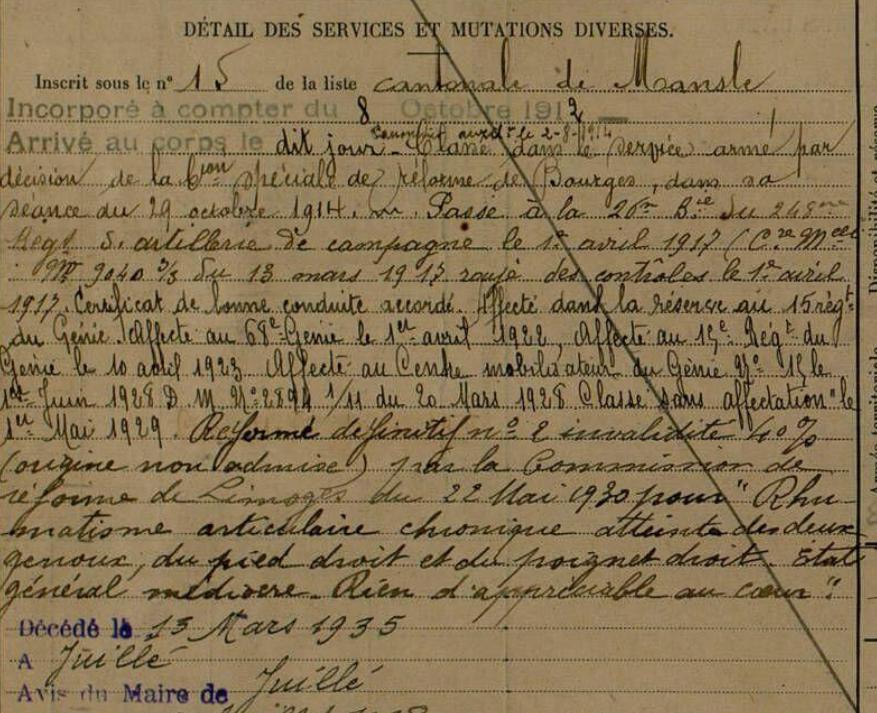 DÉTAIL DES SERVICES ET MUTATIONS DIVERSES.
Inscrit sous le n° 15 de la liste cantonale de Mansle
Incorporé à compter du 8 Octobre 1912
Arrivé au corps le dit jour Classé dans le service armé par
décision de la Cion spéciale de réforme de Bourges, dans sa
séance du 29 octobre 1914. Passé à la 26e Bie du 248me
Régt d'artillerie de campagne le 1er avril 1917 (Cre Melle
Mre 9040 3/3 du 13 mars 1917 rayé des contrôles le 1er avril
1917. Certificat de bonne conduite accordé. Affecté dans la réserve au 15 régt
du Génie. Affecté au 68e Génie le 1er avril 1922, Affecté au 15e Régt du
Génie le 10 avril 1923 Affecté au Centre mobilisateur du Génie N° 15 le
1er Juin 1928 D. M. N° 2894 1/11 du 20 Mars 1928 Classé "sans affectation" le
1er Mai 1929. Réformé définitif n° 2 invalidité 40%
(origine non admise) par la Commission de
réforme de Limoges du 22 Mai 1930 pour "Rhu-
matisme articulaire chronique atteinte des deux
genoux, du pied droit et du poignet droit. Etat
général médiocre. Rien d'appréciable au cœur".
Décédé le 13 Mars 1935
A Juillé
Avis du Maire de Juillé